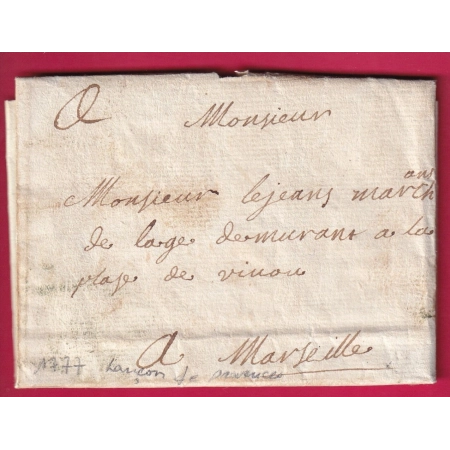 A Monsieur
ans
Monsieur lejeans march
de lage demurant a la
plase de vinou
A Marseille
1777 Lançon de provence